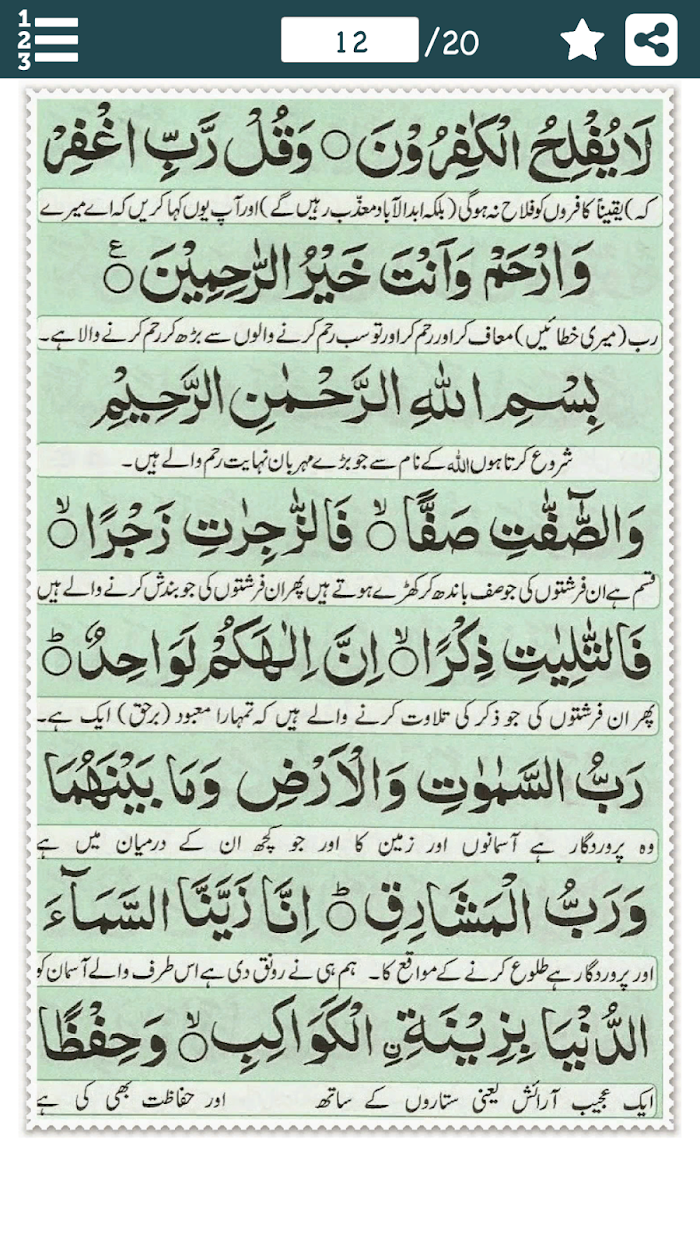 1
2
3
12 /20
لَا يُفْلِحُ الْكٰفِرُوْنَ ۝ وَقُلْ رَّبِّ اغْفِرْ
کہ) یقیناً کافروں کو فلاح نہ ہوگی (بلکہ ابدالآباد معذّب رہیں گے) اور آپ یوں کہا کریں کہ اے میرے
وَارْحَمْ وَاَنْتَ خَيْرُ الرّٰحِمِيْنَ ۝ۧ
رب (میری خطائیں) معاف کر اور رحم کر اور تو سب رحم کرنے والوں سے بڑھ کر رحم کرنے والا ہے۔
بِسْمِ اللّٰهِ الرَّحْمٰنِ الرَّحِيْمِ
شروع کرتا ہوں اللہ کے نام سے جو بڑے مہربان نہایت رحم والے ہیں۔
وَالصّٰٓفّٰتِ صَفًّا ۝ۙ فَالزّٰجِرٰتِ زَجْرًا ۝ۙ
قسم ہے ان فرشتوں کی جو صف باندھ کر کھڑے ہوتے ہیں پھر ان فرشتوں کی جو بندش کرنے والے ہیں
فَالتّٰلِيٰتِ ذِكْرًا ۝ۙ اِنَّ اِلٰهَكُمْ لَوَاحِدٌ ۝ؕ
پھر ان فرشتوں کی جو ذکر کی تلاوت کرنے والے ہیں کہ تمہارا معبود (برحق) ایک ہے۔
رَبُّ السَّمٰوٰتِ وَالْاَرْضِ وَمَا بَيْنَهُمَا
وہ پروردگار ہے آسمانوں اور زمین کا اور جو کچھ ان کے درمیان میں ہے
وَرَبُّ الْمَشَارِقِ ۝ؕ اِنَّا زَيَّنَّا السَّمَآءَ
اور پروردگار ہے طلوع کرنے کے مواقع کا۔ ہم ہی نے رونق دی ہے اس طرف والے آسمان کو
الدُّنْيَا بِزِيْنَةِ ِۨالْكَوَاكِبِ ۝ۙ وَحِفْظًا
ایک عجیب آرائش یعنی ستاروں کے ساتھ اور حفاظت بھی کی ہے